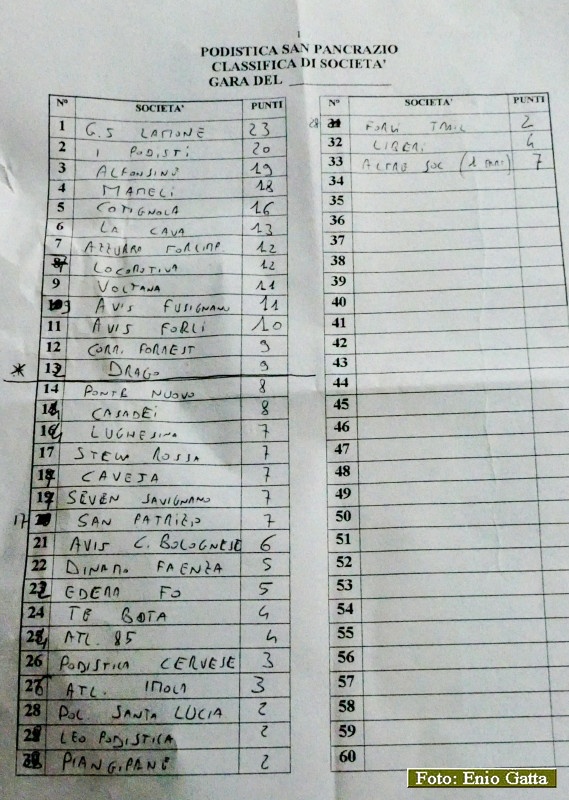 1
PODISTICA SAN PANCRAZIO
CLASSIFICA DI SOCIETA'
GARA DEL
N° SOCIETA' PUNTI
1 G.S LAMONE 23
2 I PODISTI 20
3 ALFONSINO 19
4 MAMELI 18
5 COTIGNOLA 16
6 LA CAVA 13
7 AZZURRA FORLIMP 12
LOCOMOTIVA 12
9 VOLTANA 11
9 AVIS FUSIGNANO 11
11 AVIS FORLÌ 10
12 CORR. FORREST 9
* 12 DRAGO 9
14 PONTE NUOVO 8
14 CASADEI 8
LUGHESINA 7
17 STELLA ROSSA 7
CAVEJA 7
SEVEN SAVIGNANO 7
17 SAN PATRIZIO 7
21 AVIS C. BOLOGNESE 6
22 DINAMO FAENZA 5
22 EDERA FO 5
24 TE BOTA 4
24 ATL. 85 4
26 PODISTICA CERVESE 3
26 ATL. IMOLA 3
28 POL. SANTA LUCIA 2
28 LEO PODISTICA 2
PIANGIPANE 2
N° SOCIETA' PUNTI
28 31 FORLÌ TRAIL 2
32 LIBERI 4
33 ALTRE SOC (1 PART) 7
34
35
36
37
38
39
40
41
42
43
44
45
46
47
48
49
50
51
52
53
54
55
56
57
58
59
60
Foto: Enio Gatta